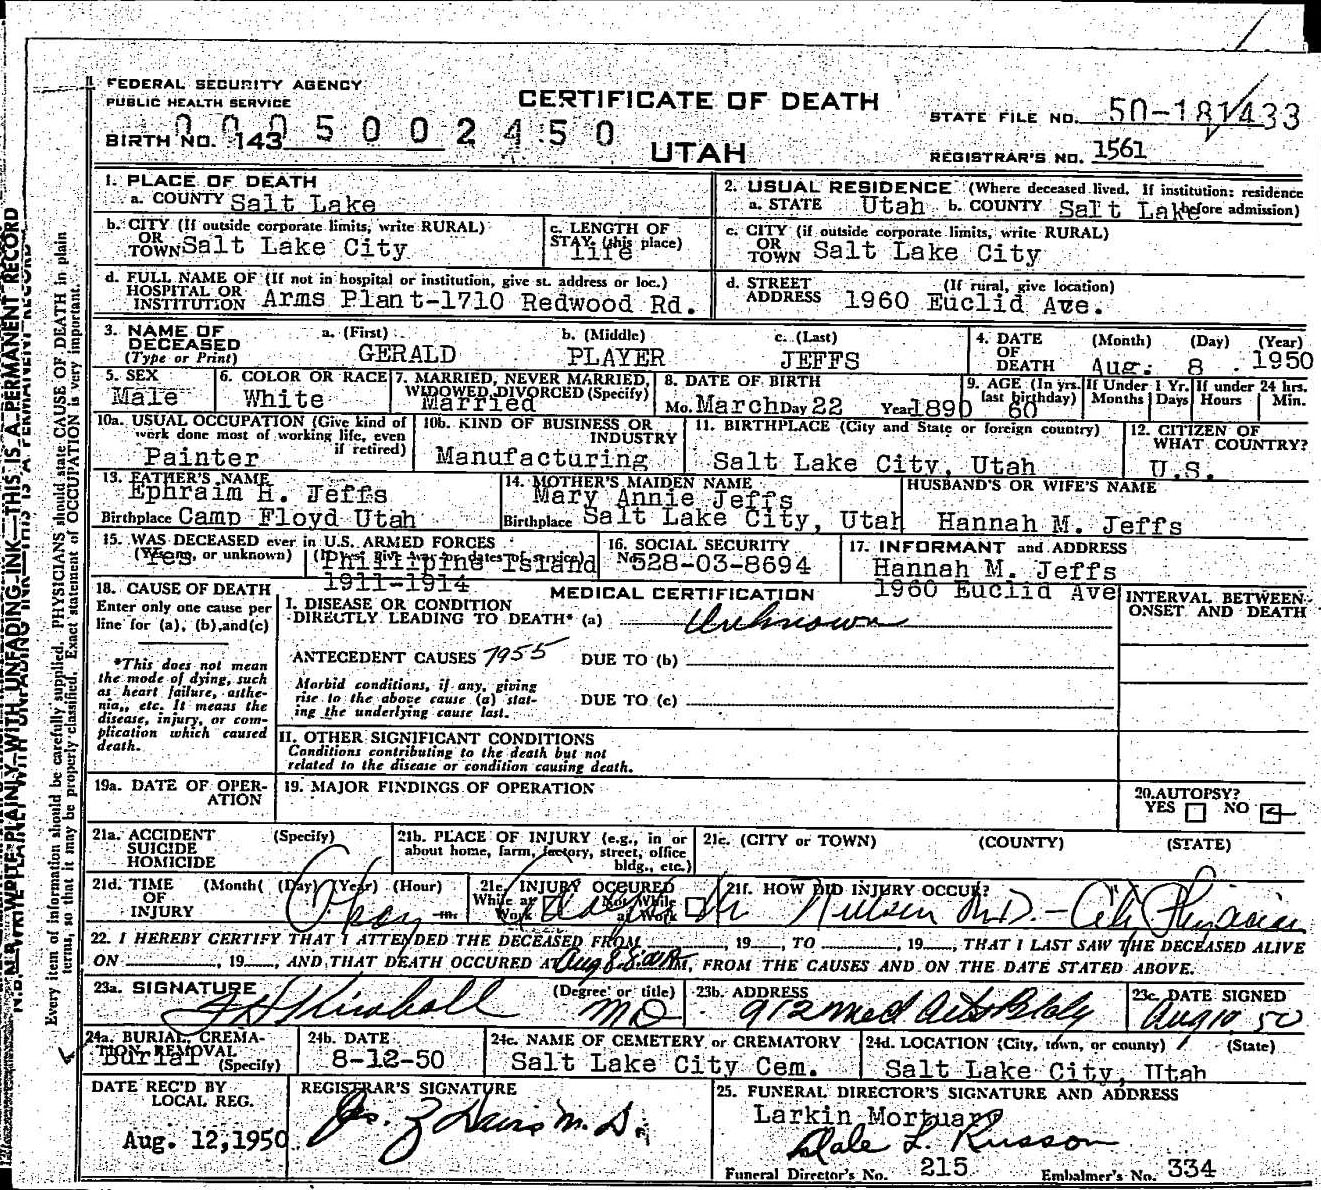 FEDERAL SECURITY AGENCY
PUBLIC HEALTH SERVICE
CERTIFICATE OF DEATH
STATE FILE NO. 50-181433
0005002450
BIRTH NO. 143
UTAH
REGISTRAR'S NO. 1561
1. PLACE OF DEATH
a. COUNTY Salt Lake
2. USUAL RESIDENCE (Where deceased lived. If institution: residence before admission)
a. STATE Utah b. COUNTY Salt Lake
b. CITY (If outside corporate limits, write RURAL)
OR
TOWN Salt Lake City
c. LENGTH OF
STAY (this place)
life
c. CITY (if outside corporate limits, write RURAL)
OR
TOWN Salt Lake City
d. FULL NAME OF (If not in hospital or institution, give st. address or loc.)
HOSPITAL OR
INSTITUTION Arms Plant-1710 Redwood Rd.
d. STREET (If rural, give location)
ADDRESS 1960 Euclid Ave.
3. NAME OF
DECEASED
(Type or Print)
a. (First) b. (Middle) c. (Last)
GERALD PLAYER JEFFS
4. DATE
OF
DEATH
(Month) (Day) (Year)
Aug. 8 1950
5. SEX
Male
6. COLOR OR RACE
White
7. MARRIED, NEVER MARRIED,
WIDOWED, DIVORCED (Specify)
Married
8. DATE OF BIRTH
Mo. March Day 22 Year 1890
9. AGE (In yrs.
last birthday)
60
If Under 1 Yr.
Months Days
If under 24 hrs.
Hours Min.
10a. USUAL OCCUPATION (Give kind of
work done most of working life, even
if retired)
Painter
10b. KIND OF BUSINESS OR
INDUSTRY
Manufacturing
11. BIRTHPLACE (City and State or foreign country)
Salt Lake City, Utah
12. CITIZEN OF
WHAT COUNTRY?
U.S.
13. FATHER'S NAME
Ephraim H. Jeffs
Birthplace Camp Floyd Utah
14. MOTHER'S MAIDEN NAME
Mary Annie Jeffs
Birthplace Salt Lake City, Utah
HUSBAND'S OR WIFE'S NAME
Hannah M. Jeffs
15. WAS DECEASED ever in U.S. ARMED FORCES
(Yes, no, or unknown) (If yes, give war or dates of service)
Yes Phillipine Island
1911-1914
16. SOCIAL SECURITY
No. 528-03-8694
17. INFORMANT and ADDRESS
Hannah M. Jeffs
1960 Euclid Ave
18. CAUSE OF DEATH
Enter only one cause per
line for (a), (b), and (c)
*This does not mean
the mode of dying, such
as heart failure, asthe-
nia,, etc. It means the
disease, injury, or com-
plication which caused
death.
MEDICAL CERTIFICATION
I. DISEASE OR CONDITION
DIRECTLY LEADING TO DEATH* (a) Unknown
ANTECEDENT CAUSES 7955 DUE TO (b)
Morbid conditions, if any, giving
rise to the above cause (a) stat-
ing the underlying cause last.
DUE TO (c)
II. OTHER SIGNIFICANT CONDITIONS
Conditions contributing to the death but not
related to the disease or condition causing death.
INTERVAL BETWEEN
ONSET AND DEATH
19a. DATE OF OPER-
ATION
19. MAJOR FINDINGS OF OPERATION
20. AUTOPSY?
YES NO
21a. ACCIDENT (Specify)
SUICIDE
HOMICIDE
21b. PLACE OF INJURY (e.g., in or
about home, farm, factory, street, office
bldg., etc.)
21c. (CITY or TOWN) (COUNTY) (STATE)
21d. TIME (Month) (Day) (Year) (Hour)
OF
INJURY m.
21e. INJURY OCCURED
While at Work Not While at Work
21f. HOW DID INJURY OCCUR?
Okay Dr Nielsen M.D. - City Physician
22. I HEREBY CERTIFY THAT I ATTENDED THE DECEASED FROM , 19 , TO , 19 , THAT I LAST SAW THE DECEASED ALIVE
ON , 19 , AND THAT DEATH OCCURED AT Aug 8 M, FROM THE CAUSES AND ON THE DATE STATED ABOVE.
23a. SIGNATURE (Degree or title)
Kimball MD
23b. ADDRESS
912 Med Arts Bldg
23c. DATE SIGNED
Aug 10 50
24a. BURIAL, CREMA-
TION, REMOVAL
(Specify)
Burial
24b. DATE
8-12-50
24c. NAME OF CEMETERY or CREMATORY
Salt Lake City Cem.
24d. LOCATION (City, town, or county) (State)
Salt Lake City, Utah
DATE REC'D BY
LOCAL REG.
Aug. 12, 1950
REGISTRAR'S SIGNATURE
Davis M.D.
25. FUNERAL DIRECTOR'S SIGNATURE AND ADDRESS
Larkin Mortuary
Dale L Russon
Funeral Director's No. 215 Embalmer's No. 334
WRITE PLAINLY WITH UNFADING INK—THIS IS A PERMANENT RECORD
Every item of information should be carefully supplied. PHYSICIANS should state CAUSE OF DEATH in plain
terms, so that it may be properly classified. Exact statement of OCCUPATION is very important.